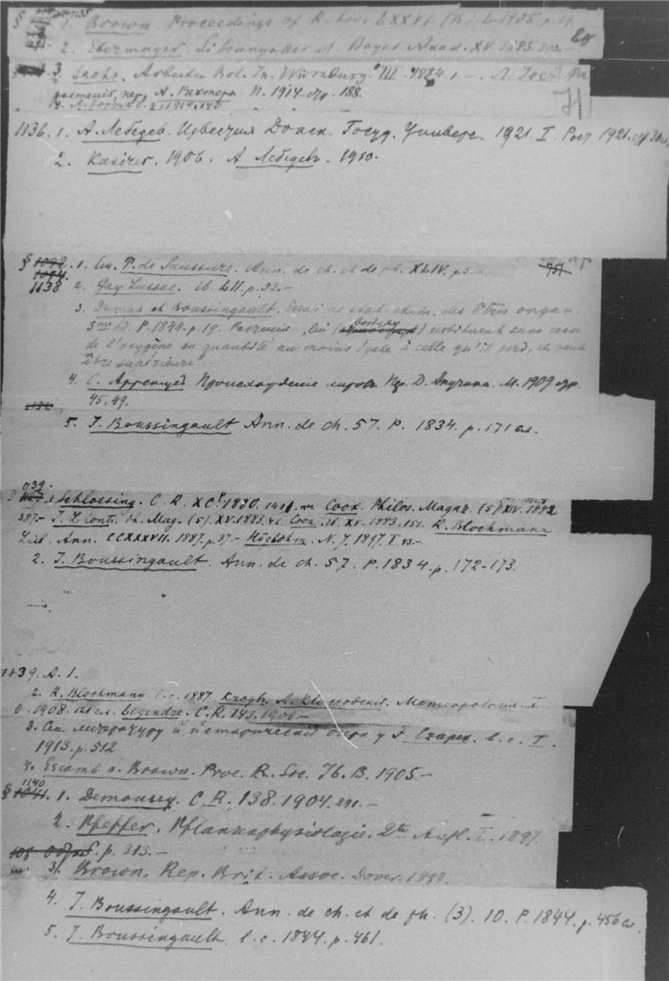 1135
1. Brown. Proceedings of R. Soc. LXXVI. (B) L. 1905. p. 29.
2. Ebermayer. Sitzungsber. Bayer. Akad. XV. 1885. 303.-
3. Sachs. Arbeiten Bot. In. Würzburg. III. 1884. 1. -
растений, пер. А. Рихтера П. 1914. стр. 188.
4.
71
1136. 1. А. Лебедев. Известия Донск. Госуд. Универс. 1921. I. Рост. 1921. стр
2. Kaserer. 1906. А. Лебедевъ. 1910.
§ 1092. 1. См. T. de Saussure. Ann. de ch. et de ph. XLIV. p. 5.-
1094.
1138 2. Gay Lussac. ib. LII. p. 32.-
3. Dumas et Boussingault. Essai de stat. chim. des êtres organ.
3me éd. P. 1844. p. 19. restituent sans cesse
de l'oxygène en quantité au moins égale à celle qu'il perd, et peut
être supérieure.
4. С. Аррениус Происхождение миров. Пер. Д. М. 1909 стр.
45. 49.
5. J. Boussingault Ann. de ch. 57. P. 1834. p. 171 сл.
1139.
1 Schloesing. C. R. XC. 1880. 1410. Cook. Philos. Magaz. (5) XIV. 1882
387.- Ph. Mag. (5) XV. 1883. Cook. ib. XV. 1883. 151. R. Blochmann
Lieb. Ann. CCXXXVII. 1887. p. 37.- Högbohm. N. J. 1897. I.
2. J. Boussingault. Ann. de ch. 57. P. 1834. p. 172-173.
1139. A. 1.
2. R. Blochmann l. c. 1887. Krogh. А. Клоссовский. Метеорология. I
О. 1908. Legendre. C. R. 143. 1906.-
3. См. литературу и исторический очерк у F. Czapek. l. c. I.
1913. p. 512
4. Escomb a. Brown. Proc. R. Soc. 76. B. 1905-
1140
§ 1041. 1. Demoussy. C. R. 138. 1904. 291.-
2. Pfeffer. Pflanzenphysiologie. 2te Aufl. I. 1897.
p. 313.-
3. Brown. Rep. Brit. Assoc. Dover. 1899.
4. J. Boussingault. Ann. de ch. et de ph. (3). 10. P. 1844. p. 456 сл.
5. J. Boussingault l. c. 1844. p. 461.